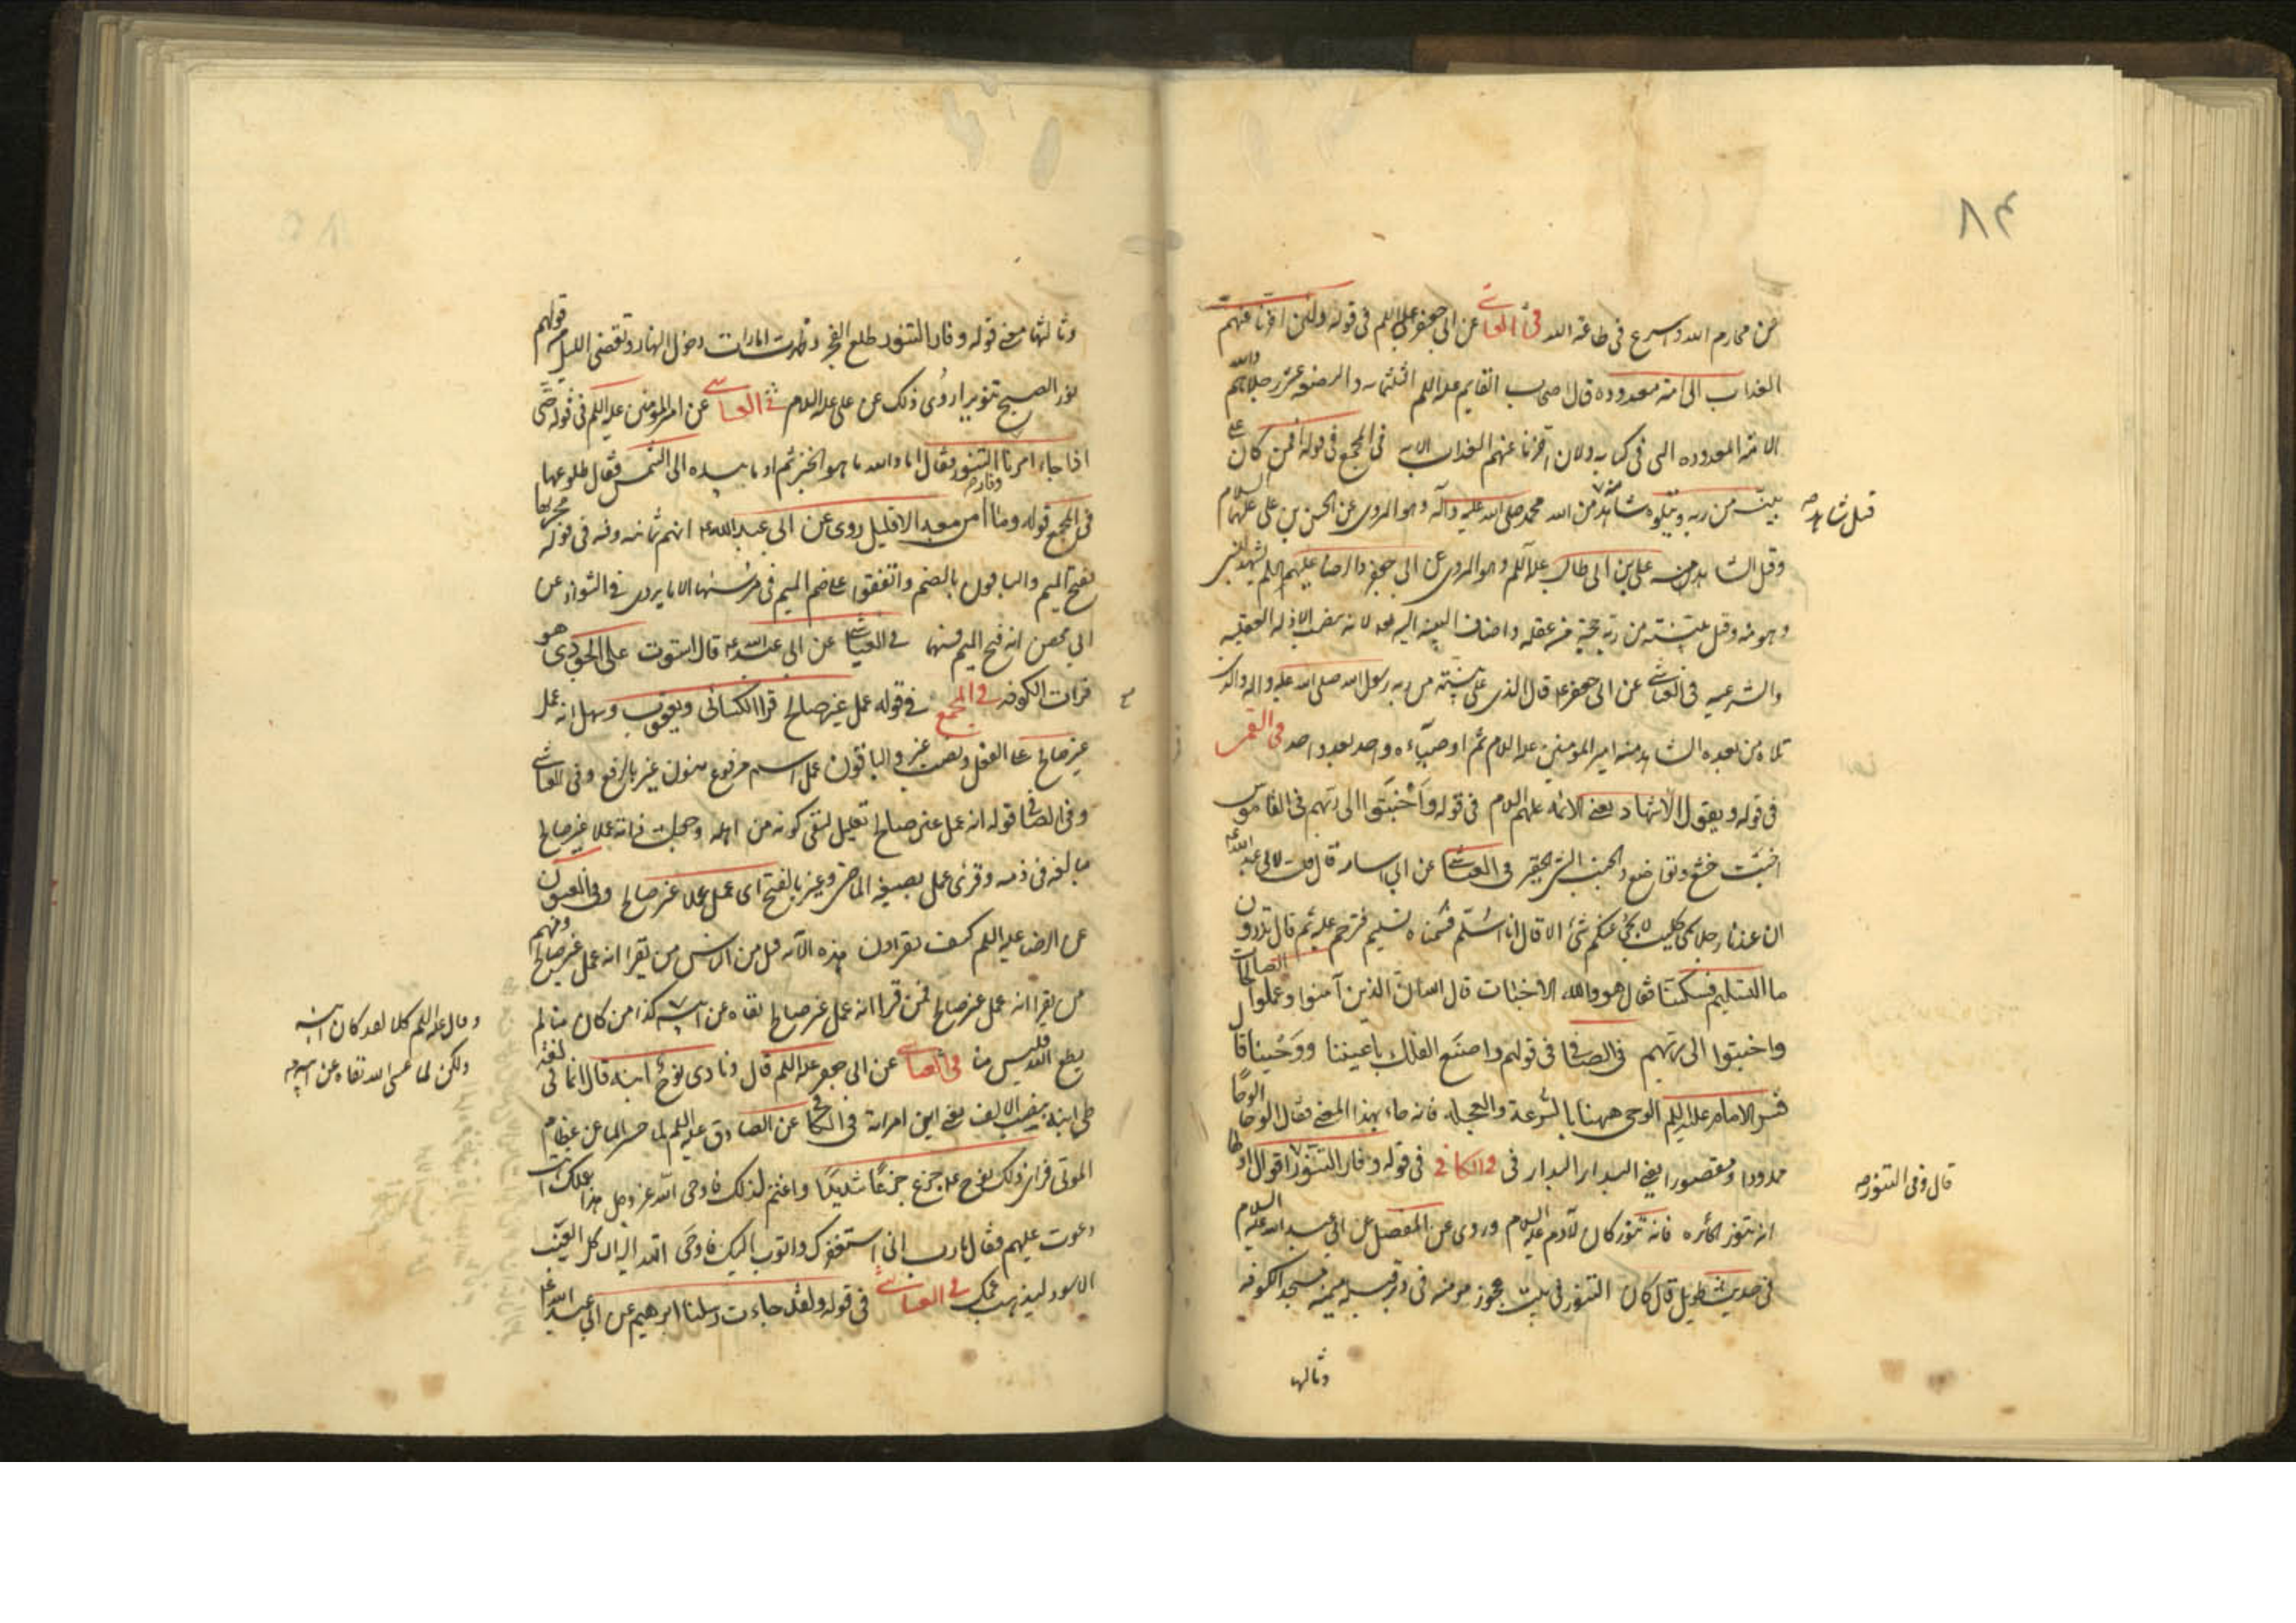 ٨٤
عن محارم الله واسرع فى طاعة الله فى العياشى عن ابى جعفر عليه السلم فى قوله ولئن اخرنا عنهم
العذاب الى امة معدودة قال اصحاب القايم عليه السلم الثلثمائه والبضعة عشر رجلا هم والله
الامة المعدودة التى فى كتابه ولئن اخرنا عنهم العذاب الايه فى المجمع فى قوله افمن كان على
بينة من ربه ويتلوه شاهد من الله محمد صلى الله عليه وآله وهو المروى عن الحسن بن على عليهما السلام
قيل شاهد صح
وقيل الشاهد منه على بن ابى طالب عليه السلم وهو المروى عن ابى جعفر والرضا عليهم السلم يشهد للنبى
وهو منه وقيل بينة من ربه حجة من عقله واضاف البينه اليه لانه ينصب الادله العقليه
والشرعيه فى العياشى عن ابى جعفر ع قال الذى على بينة من ربه رسول الله صلى الله عليه واله والذى
تلاه من بعده الشاهد منه امير المؤمنين عليه السلام ثم اوصيآءه واحد بعد واحد فى القمى
فى قوله ويقول الاشهاد يعنى الائمه عليهم السلام فى قوله وأخبتوا الى ربهم فى القاموس
اخبت خشع وتواضع والخبت الشئ الحقير فى العياشى عن ابى اسامه قال قلت لابى عبد الله ع
ان عندنا رجلا يسمى كليب لا يجئ عنكم شئ الا قال انا اسلم فسميناه كليب تسليم فترحم عليه ثم قال تدرون
ما التسليم فسكتنا فقال هو والله الاخبات قال الله ان الذين آمنوا وعملوا الصالحات
واخبتوا الى ربهم فى الصافى فى قولهم واصنع الفلك باعيننا ووحينا قال
فسر الامام عليه السلم الوحى ههنا بالسرعة والعجله فانه جاء بهذا المعنى فقال الوحا الوحا
ممدودا ومقصورا يعنى البدار البدار فى والكافى فى قوله وفار التنور اقوال اولها
قال وفى التنور صح
انه تنور الخابزه فانه تنور كان لآدم عليه السلام وروى عن المفضل عن ابى عبد الله عليه السلام
فى حديث طويل قال كان التنور فى بيت عجوز مومنه فى دبر قبلة ميمنه مسجد الكوفه
وثالثها
وثالثها معنى قوله وفار التنور طلع الفجر وظهرت امارات دخول النهار وتقضى الليل من قولهم
نور الصبح تنويرا روى ذلك عن على عليه السلام فى العياشى عن امير المؤمنين عليه السلم فى قوله حتى
اذا جاء امرنا وفار التنور فقال اما والله ما هو الخبز ثم اومأ بيده الى الشمس فقال طلوعها
فى المجمع قوله وما امن معه الا قليل روى عن ابى عبد الله ع انهم ثمانيه وفيه فى قوله مجريها
بفتح الميم والباقون بالضم واتفقوا على ضم الميم فى مرسيها الا ما يروى فى الشواذ عن
ابى محصن انه فتح الميم فيهما فى العياشى عن ابى عبد الله ع قال استوت على الجودى هو
فرات الكوفه فى المجمع فى قوله عمل غير صالح قرا الكسائى ويعقوب وسهل انه عمل
غير صالح على الفعل ونصب غير والباقون عمل اسم مرفوع منون غير بالرفع وفى العياشى
وفى الصافى قوله انه عمل غير صالح تعليل لنفى كونه من اهله وجعلت ذاته عملا غير صالح
مبالغه فى ذمه وقرئ عمل بصيغة الماضى وغير بالفتح اى عمل عملا غير صالح وفى العيون
عن الرضا عليه السلم كيف تقراون هذه الآيه قيل من الناس من يقرا انه عمل غير صالح ومنهم
من يقرا انه عمل غير صالح فمن قرا انه عمل غير صالح نفاه عن ابيه كذا من كان منا لم
وقال عليه السلم كلا لقد كان ابنه
ولكن لما عصى الله نفاه عن ابيه صح
يطع الله فليس منا فى العياشى عن ابى جعفر عليه السلم قال ونادى نوح ابنه قال انما فى لغة
طى ابنه بنصب الالف يعنى ابن امراته فى الكافى عن الصادق عليه السلم لما حسر الماء عن عظام
الموتى فراى ذلك نوح ع جزع جزعا شديدا واغتم لذلك فاوحى الله عز وجل هذا عملك انت
دعوت عليهم فقال يا رب انى استغفرك واتوب اليك فاوحى الله اليه ان كل العنب
الاسود ليذهب غمك فى العياشى فى قوله ولقد جاءت رسلنا ابرهيم عن ابى عبد الله ع